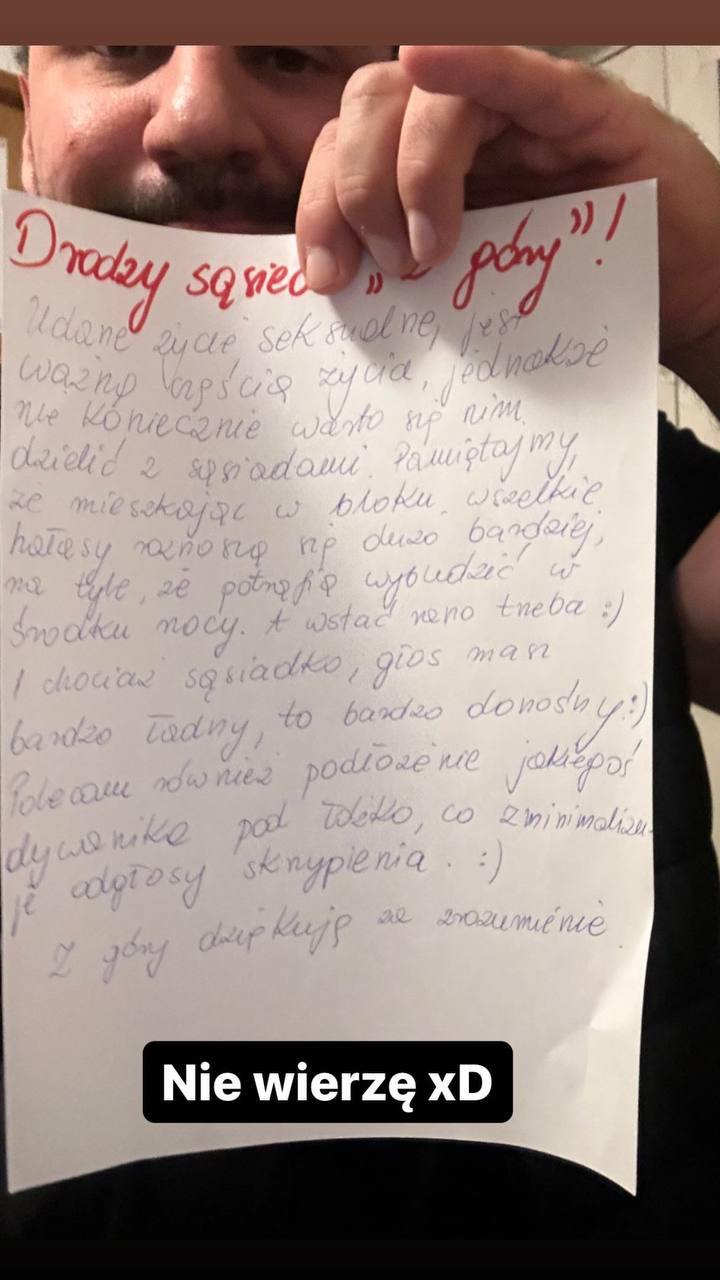 Drodzy sąsied „z góry”!
Udane życie seksualne, jest
ważną częścią życia, jednakże
nie koniecznie warto się nim
dzielić z sąsiadami. Pamiętajmy,
że mieszkając w bloku, wszelkie
hałasy roznoszą się dużo bardziej,
na tyle, że potrafią wybudzić w
środku nocy. A wstać rano trzeba :)
I chociaż sąsiadko, głos masz
bardzo ładny, to bardzo donośny :)
Polecam również podłożenie jakiegoś
dywanika pod łóżko, co zminimalizu-
je odgłosy skrzypienia. :)
Z góry dziękuję za zrozumienie.
Nie wierzę xD